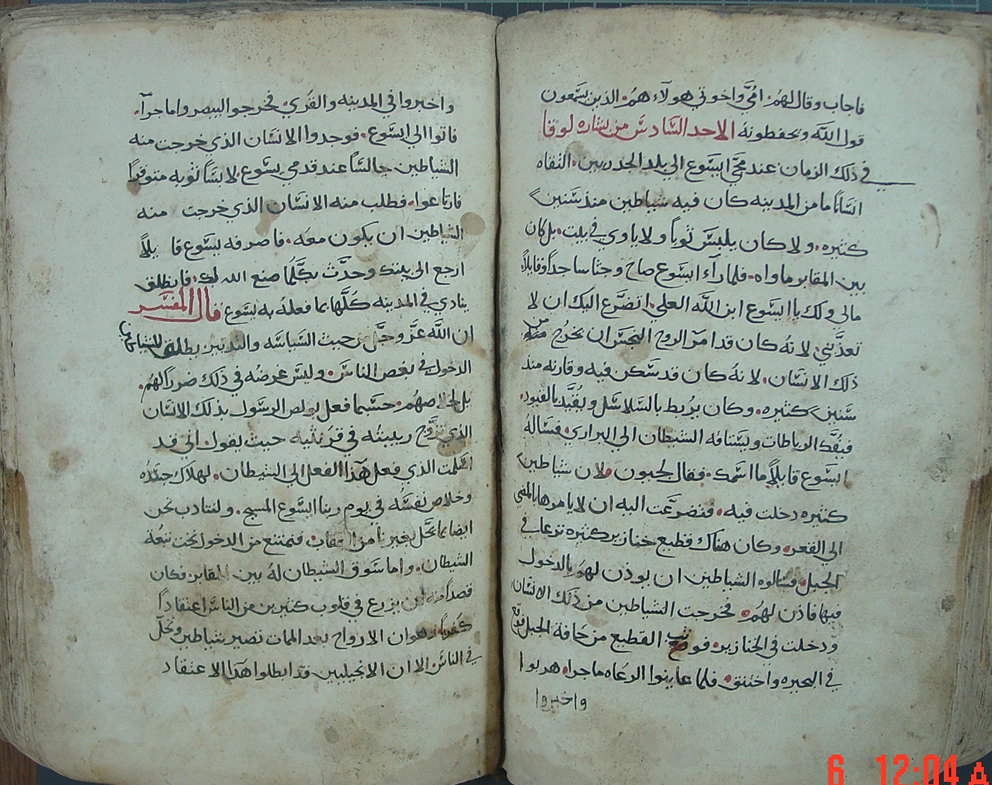 فاجاب وقال لهم: امي واخوتي هولاء هم. الذين يسمعون
قول الله ويحفظونه الاحد السادس من بشاره لوقا
في ذلك الزمان عند مجي ايسوع الى بلد الجدريين. التقاه
انسانًا ما من المدينه كان فيه شياطين منذ سنين
كثيره. ولا كان يلبس ثوبًا ولا ياوي في بيت. بل كان
بين المقابر ماواه. فلما رآء ايسوع صاح وجثا ساجدًا وقايلًا
مالي ولك يا ايسوع ابن الله العلي. اتضرع اليك ان لا
تعذبني لانه كان قد امر الروح النجس ان يخرج من
ذلك الانسان. لانه كان قد سكن فيه وقارنه منذ
سنين كثيره. وكان يربط بالسلاسل ويقيد بالقيود.
فيقد الرباطات ويستاقه الشيطان الى البراري. فساله
ايسوع قايلًا ما اسمك. فقال لجيون. لان شياطين
كثيره دخلت فيه. فتضرعت اليه ان لا يامرها بالمضي
الى القعر. وكان هناك قطيع خنازير كثيره ترعا في
الجبل. فسالوه الشياطين ان يوذن لهم بالدخول
فيها فاذن لهم. فخرجت الشياطين من ذلك الانسان
ودخلت في الخنازير. فوثب القطيع من حافة الجبل
في البحيره واختنق. فلما عاينوا الرعاه ماجرا. هربوا
واخبروا
واخبروا في المدينه والقرى. فخرجوا ليبصروا ما جرآ.
فاتوا الى ايسوع. فوجدوا الانسان الذي خرجت منه
الشياطين جالسًا عند قدمي يسوع. لابسًا ثوبه متوقرًا
فارتاعوا. فطلب منه الانسان الذي خرجت منه
الشياطين ان يكون معه. فاصرفه يسوع قايلًا
ارجع الى بيتك وحدث بكلما صنع الله لك. فانطلق
ينادي في المدينه كلها بما فعله به يسوع قال المفسر
ان الله عز وجل من حيث السياسه والتدبير يطلق للشياطين
الدخول في بعض الناس. وليس غرضه في ذلك ضررًا لهم.
بل خلاصهم. حسبما فعل بولص الرسول بذلك الانسان
الذي تزوج ربيبته في قرنثيه حيث يقول. اني قد
اسلمت الذي فعل هذا الفعل الى الشيطان. لهلاك جسده
وخلاص نفسه في يوم ربنا ايسوع المسيح. ولنتادب نحن
ايضا بما تحل بغيرنا من العقاب. فنمتنع من الدخول تحت تبعة
الشيطان. واما سوق الشيطان له بين المقابر فكان
قصدًا منه ان يزرع في قلوب كثيرين من الناس اعتقادًا
كفريًا وهو ان الارواح بعد الممات تصير شياطين وتحل
في الناس. الا ان الانجيليين قد ابطلوا هذا الاعتقاد
6 12:04 A